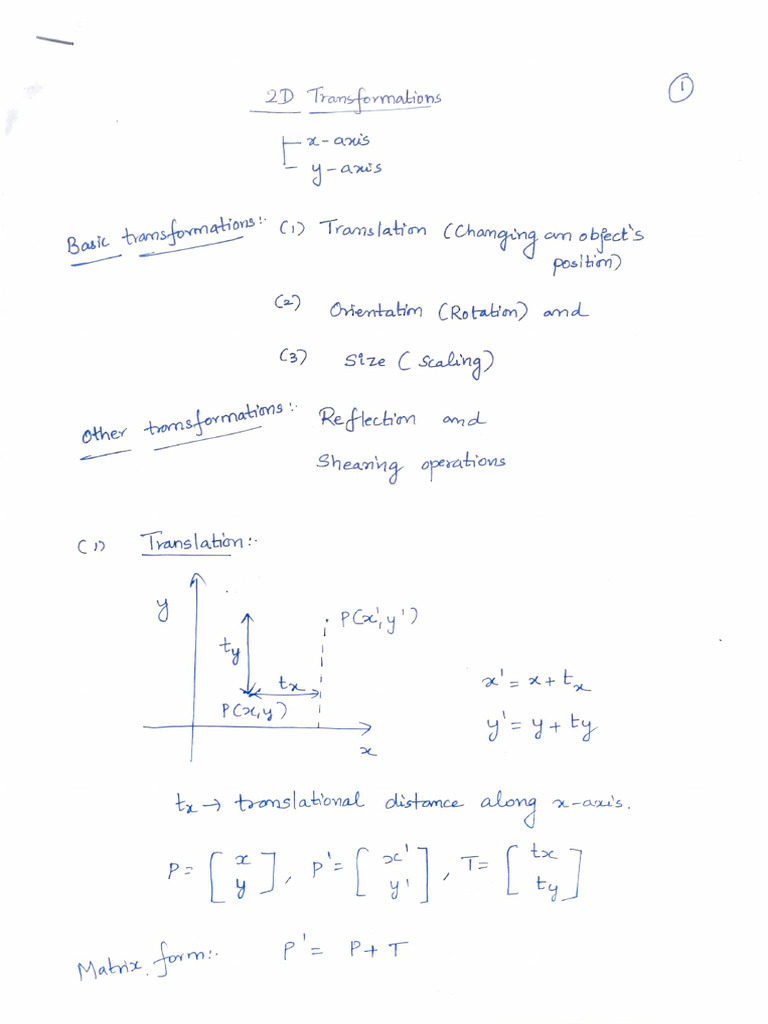 1
2D Transformations
x-axis
y-axis
Basic transformations:- (1) Translation (Changing an object's
position)
(2) Orientation (Rotation) and
(3) Size (Scaling)
Other transformations:- Reflection and
Shearing operations
(1) Translation:-
y
P(x', y')
ty
tx
P(x,y)
x
x' = x + tx
y' = y + ty
tx → translational distance along x-axis.
P = [x y], P' = [x' y'], T = [tx ty]
Matrix form:- P' = P + T